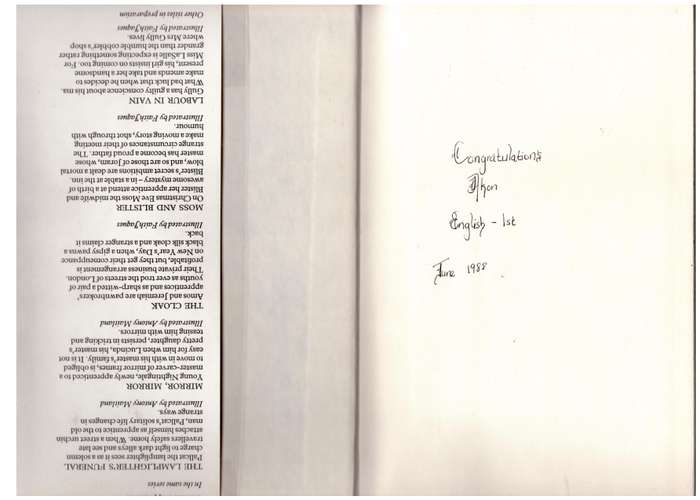 In the same series
THE LAMPLIGHTER'S FUNERAL
Pallcat the lamplighter sees it as a solemn
charge to light dark alleys and see late
travellers safely home. When a street urchin
attaches himself as apprentice to the old
man, Pallcat's solitary life changes in
strange ways.
Illustrated by Antony Maitland
MIRROR, MIRROR
Young Nightingale, newly apprenticed to a
master-carver of mirror frames, is obliged
to move in with his master's family. It is not
easy for him when Lucinda, his master's
pretty daughter, persists in tricking and
teasing him with mirrors.
Illustrated by Antony Maitland
THE CLOAK
Amos and Jeremiah are pawnbrokers'
apprentices and as sharp-witted a pair of
youths as ever trod the streets of London.
Their private business arrangement is
profitable, but they get their comeuppance
on New Year's Day, when a gipsy pawns a
black silk cloak and a stranger claims it
back.
Illustrated by Faith Jaques
MOSS AND BLISTER
On Christmas Eve Moss the midwife and
Blister her apprentice attend at a birth of
awesome mystery – in a stable at the inn.
Blister's secret ambitions are dealt a mortal
blow, and so are those of Joram, whose
master has become a proud father. The
strange circumstances of their meeting
make a moving story, shot through with
humour.
Illustrated by Faith Jaques
LABOUR IN VAIN
Gully has a guilty conscience about his ma.
What bad luck that when he decides to
make amends and take her a handsome
present, his girl insists on coming too. For
Miss LaSalle is expecting something rather
grander than the humble cobbler's shop
where Mrs Gully lives.
Illustrated by Faith Jaques
Other titles in preparation
Congratulations
English - 1st
June 1988